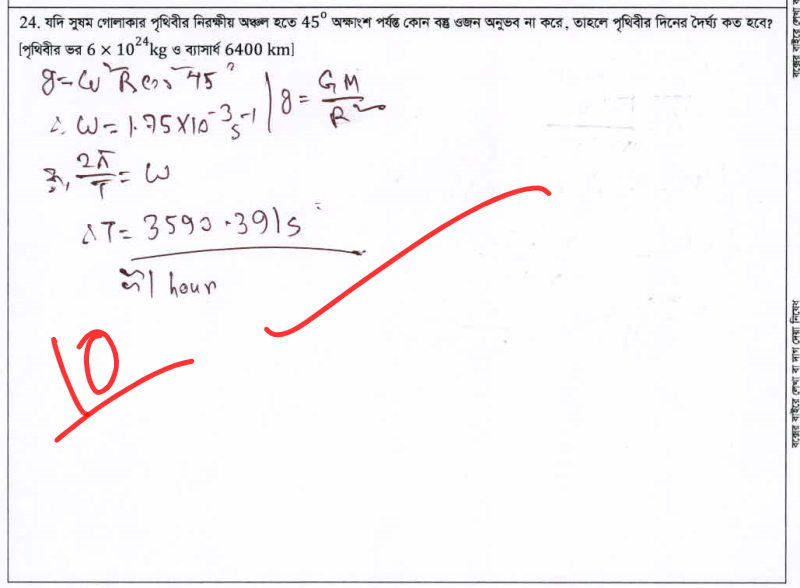 24. যদি সুষম গোলাকার পৃথিবীর নিরক্ষীয় অঞ্চল হতে 45⁰ অক্ষাংশ পর্যন্ত কোন বস্তু ওজন অনুভব না করে, তাহলে পৃথিবীর দিনের দৈর্ঘ্য কত হবে?
[পৃথিবীর ভর 6 × 10²⁴kg ও ব্যাসার্ধ 6400 km]
g = ω²R cos² 45° | g = GM/R²
∴ ω = 1.75×10⁻³ s⁻¹
বা, 2π/T = ω
∴ T = 3590.391s
বা 1 hour
10
বক্সের বাইরে লেখা বা দাগ দেয়া নিষেধ
বক্সের বাইরে লেখা ব